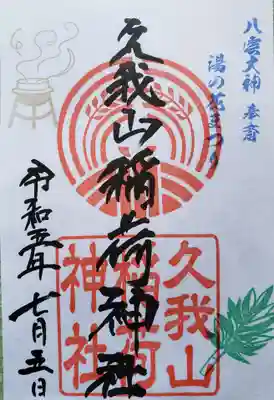 八雲大神 奉斎
湯の花まつり
久我山稲荷神社
令和五年 七月五日
久我山
稲荷
神社